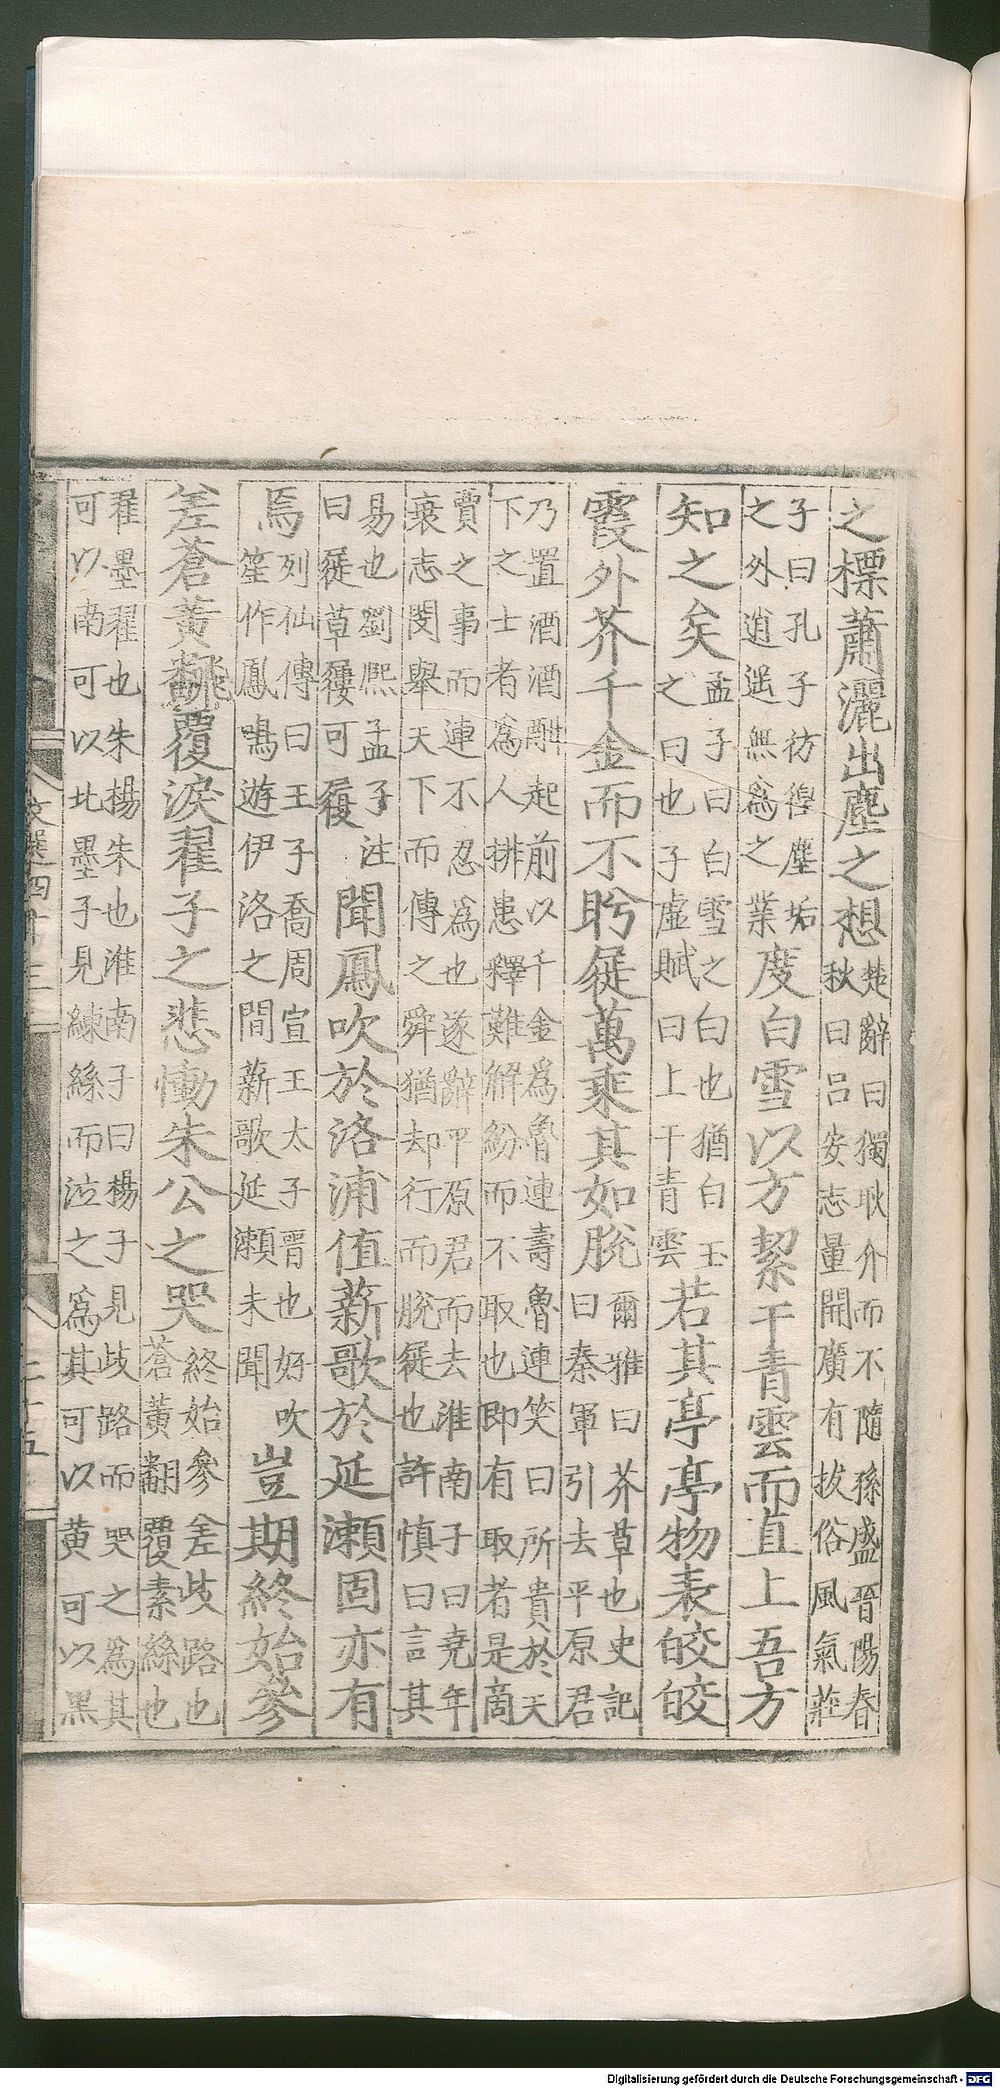 之標蕭灑出塵之想楚辭曰獨耿介而不隨孫盛晉陽春
秋曰呂安志量開廣有拔俗風氣莊
子曰孔子彷徨塵垢
之外逍遥無爲之業度白雪以方絜干青雲而直上吾方
知之矣孟子曰白雪之白也猶白玉
之曰也子虛賦曰上干青雲若其亭亭物表皎皎
霞外芥千金而不眄屣萬乘其如脫爾雅曰芥草也史記
曰秦軍引去平原君
乃置酒酒酣起前以千金爲魯連壽魯連笑曰所貴於天
下之士者爲人排患釋難解紛而不取也即有取者是商
賈之事而連不忍爲也遂辭平原君而去淮南子曰堯年
衰志閔舉天下而傳之舜猶却行而脫屣也許慎曰言其
易也劉熙孟子注
曰屣草屨可履聞鳳吹於洛浦值薪歌於延瀨固亦有
焉列仙傳曰王子喬周宣王太子晉也好吹
笙作鳳鳴遊伊洛之間薪歌延瀨未聞豈期終始參
差蒼黃飜覆淚翟子之悲慟朱公之哭終始參差歧路也
蒼黃翻覆素絲也
翟墨翟也朱楊朱也淮南子曰楊子見歧路而哭之爲其
可以南可以北墨子見練絲而泣之爲其可以黃可以黑
文選四十三
二十五
Digitalisierung gefördert durch die Deutsche Forschungsgemeinschaft - DFG